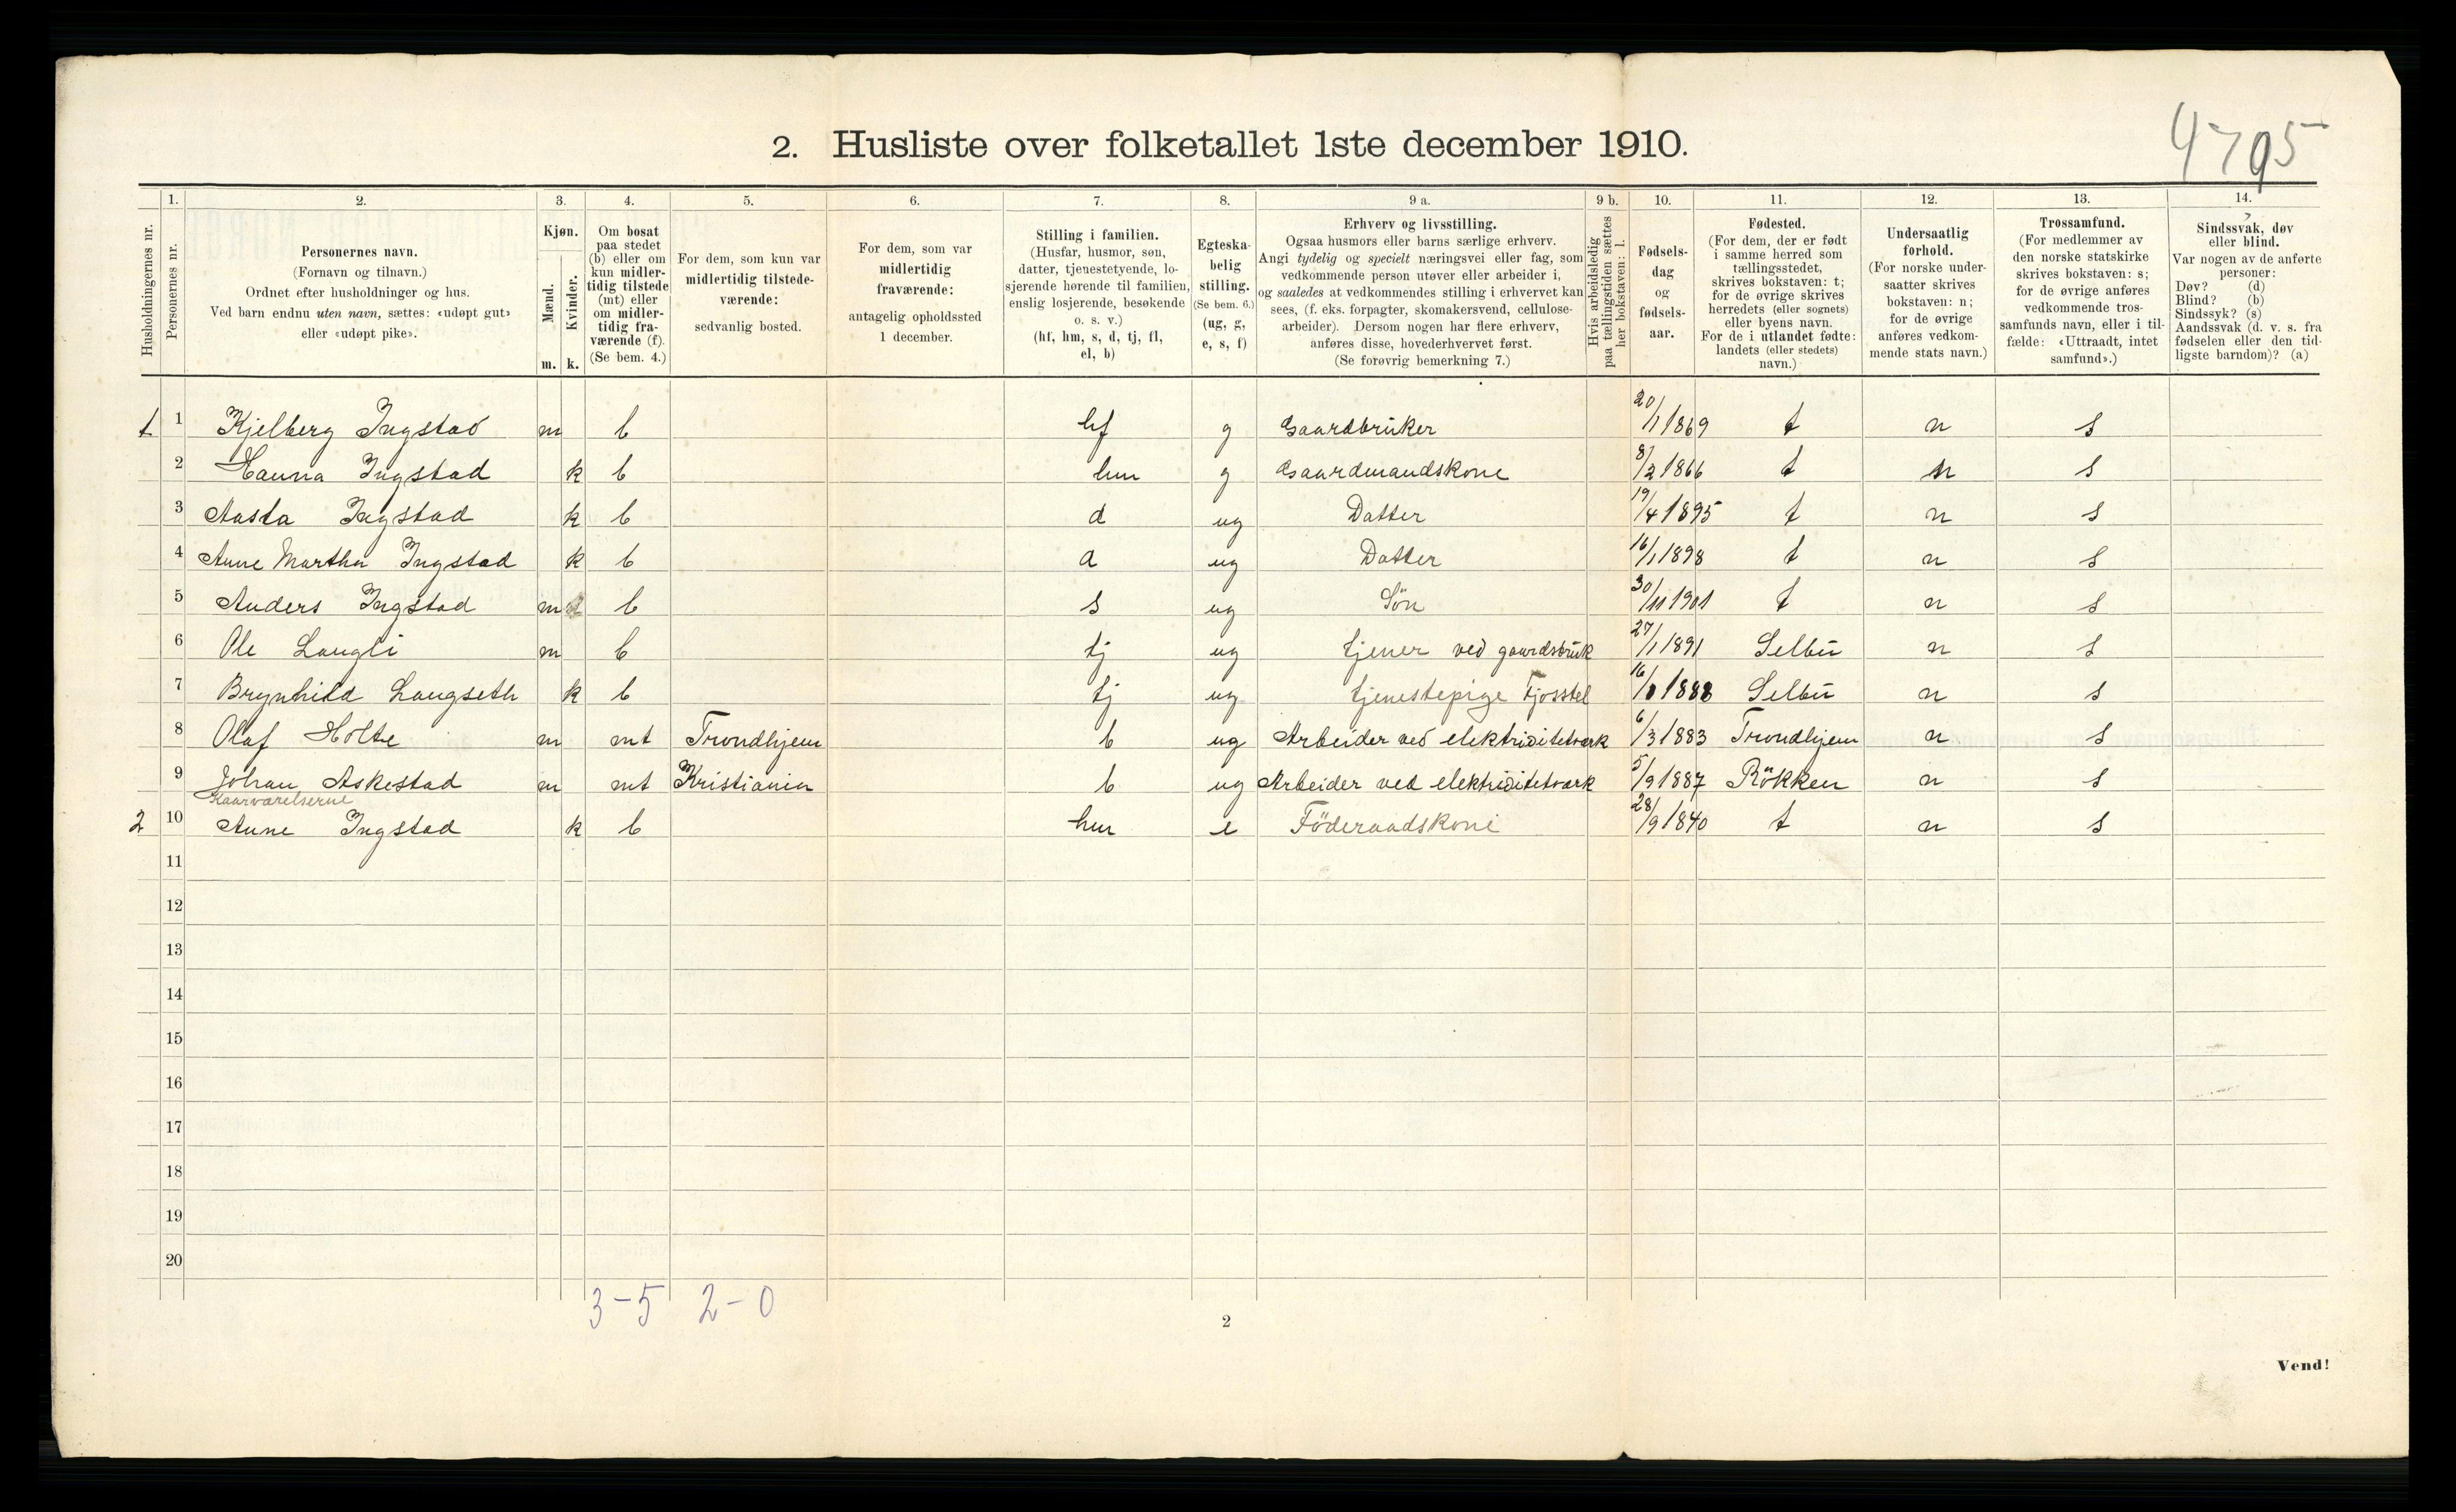 4795
2. Husliste over folketallet 1ste december 1910.
Husholdningernes nr.
1.
Personernes nr.
2.
Personernes navn.
(Fornavn og tilnavn.)
Ordnet efter husholdninger og hus.
Ved barn endnu uten navn, sættes: «udøpt gut»
eller «udøpt pike».
3.
Kjøn.
Mænd.
Kvinder.
m. k.
4.
Om bosat
paa stedet
(b) eller om
kun midler-
tidig tilstede
(mt) eller
om midler-
tidig fra-
værende (f).
(Se bem. 4.)
5.
For dem, som kun var
midlertidig tilstede-
værende:
sedvanlig bosted.
6.
For dem, som var
midlertidig
fraværende:
antagelig opholdssted
1 december.
7.
Stilling i familien.
(Husfar, husmor, søn,
datter, tjenestetyende, lo-
sjerende hørende til familien,
enslig losjerende, besøkende
o. s. v.)
(hf, hm, s, d, tj, fl,
el, b)
8.
Egteska-
belig
stilling.
(Se bem. 6.)
(ug, g,
e, s, f)
9 a.
Erhverv og livsstilling.
Ogsaa husmors eller barns særlige erhverv.
Angi tydelig og specielt næringsvei eller fag, som
vedkommende person utøver eller arbeider i,
og saaledes at vedkommendes stilling i erhvervet kan
sees, (f. eks. forpagter, skomakersvend, cellulose-
arbeider). Dersom nogen har flere erhverv,
anføres disse, hovederhvervet først.
(Se forøvrig bemerkning 7.)
9 b.
Hvis arbeidsledig
paa tællingstiden sættes
her bokstaven: l.
10.
Fødsels-
dag
og
fødsels-
aar.
11.
Fødested.
(For dem, der er født
i samme herred som
tællingsstedet,
skrives bokstaven: t;
for de øvrige skrives
herredets (eller sognets)
eller byens navn.
For de i utlandet fødte:
landets (eller stedets)
navn.)
12.
Undersaatlig
forhold.
(For norske under-
saatter skrives
bokstaven: n;
for de øvrige
anføres vedkom-
mende stats navn.)
13.
Trossamfund.
(For medlemmer av
den norske statskirke
skrives bokstaven: s;
for de øvrige anføres
vedkommende tros-
samfunds navn, eller i til-
fælde: «Uttraadt, intet
samfund».)
14.
Sindssvak, døv
eller blind.
Var nogen av de anførte
personer:
Døv? (d)
Blind? (b)
Sindssyk? (s)
Aandssvak (d. v. s. fra
fødselen eller den tid-
ligste barndom)? (a)
1 1 Kjelberg Ingstad m b hf g Gaardbruker 20/1 1869 t n s
2 Hanna Ingstad k b hm g Gaardmandskone 8/2 1866 t n s
3 Aasta Ingstad k b d ug Datter 19/4 1895 t n s
4 Anne Martha Ingstad k b d ug Datter 16/1 1898 t n s
5 Anders Ingstad m b s ug Sön 30/11 1901 t n s
6 Ole Langli m b tj ug tjener ved gaardsbruk 27/1 1891 Selbu n s
7 Brynhild Langseth k b tj ug tjenestepige Fjosstel 16/8 1888 Selbu n s
8 Olaf Holte m mt Trondhjem b ug Arbeider ved elektriditetværk 6/3 1883 Trondhjem n s
9 Johan Askestad m mt Kristiania b ug Arbeider ved elektriditetværk 5/9 1887 Rökken n s
Kaarværelserne
2 10 Anne Ingstad k b hm e Föderaadskone 28/9 1840 t n s
11
12
13
14
15
16
17
18
19
20
3-5 2-0
2
Vend!